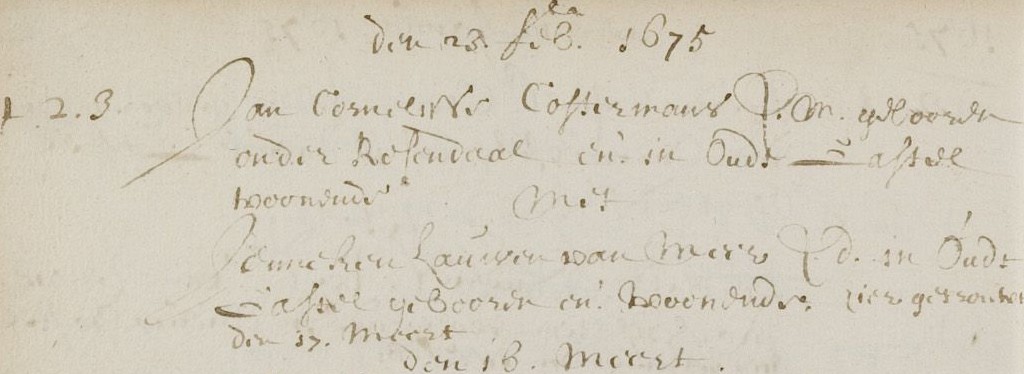 den 23. feb. 1675
1. 2. 3. Jan Cornelisse Costermans J. M. gebooren
onder Rosendaal en. in Oudt Castel
woonende Met
Jenneken Lauwen van Meer J. d. in Oudt
Castel gebooren en. woonende. hier getrouwt
den 17. Meert
den 16. Meert.